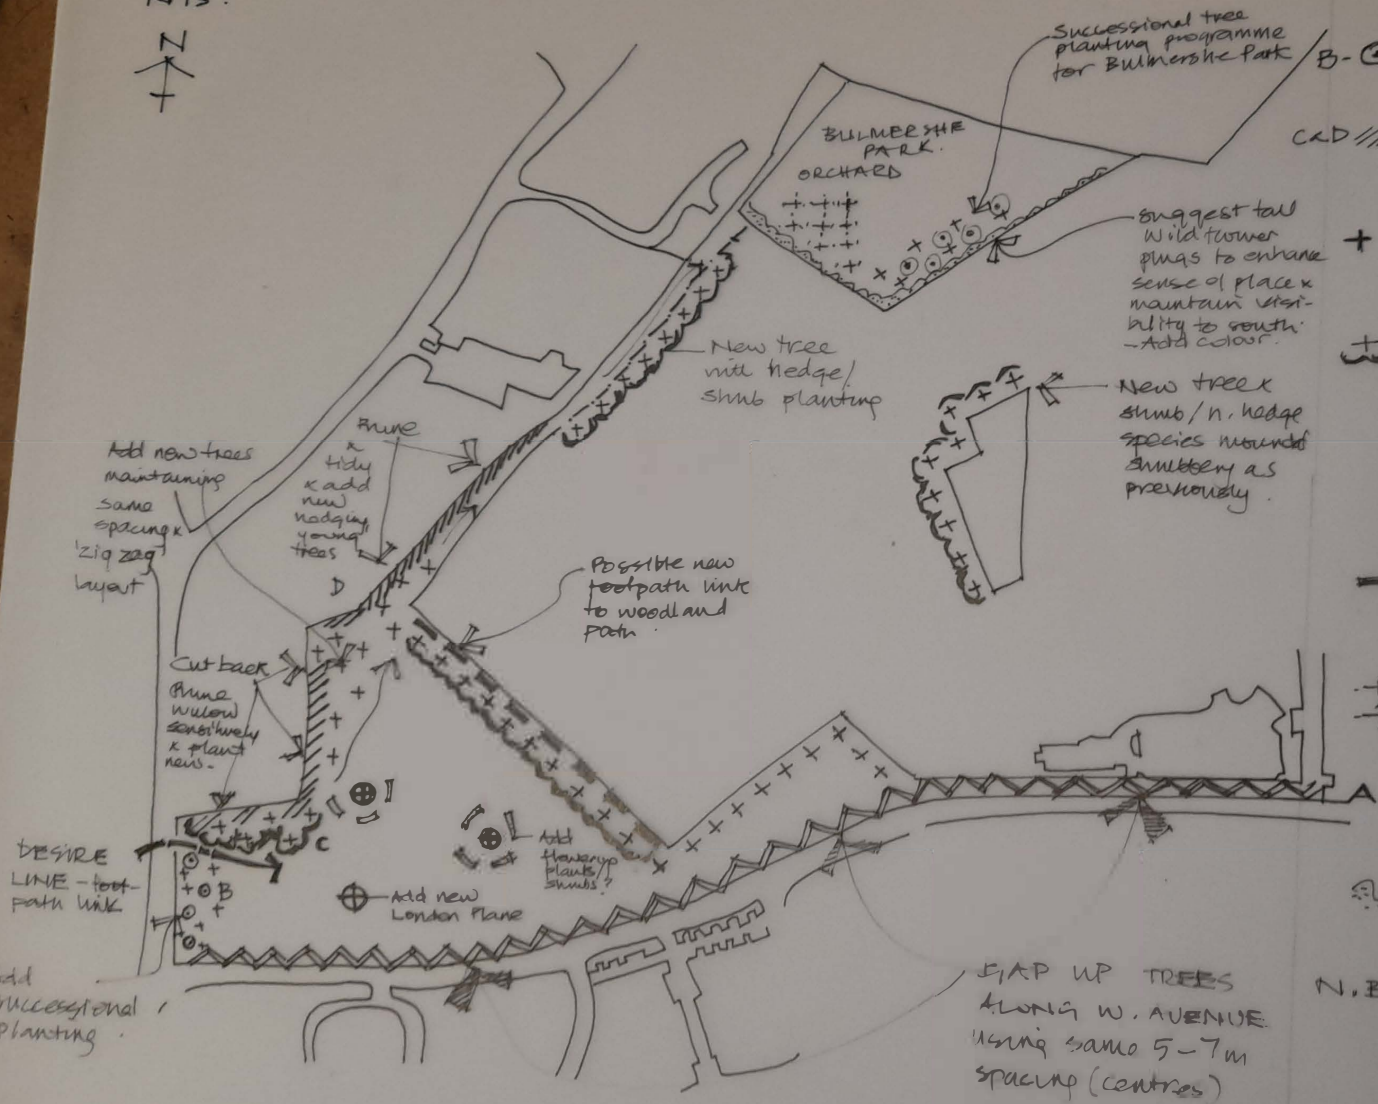 NTS.
N
Successional tree
planting programme
for Bulmershe Park
B-
C&D
BULMERSHE
PARK.
ORCHARD
suggest tall
wildflower
plugs to enhance
sense of place &
maintain visi-
bility to south.
- Add colour.
New tree
with hedge/
shrub planting
New tree &
shrub/n. hedge
species mounded
shrubbery as
previously.
Prune
&
tidy
& add
new
hedging,
young
trees
Add new trees
maintaining
same
spacing &
'zig zag'
layout
D
Possible new
footpath link
to woodland
path.
Cut back
Prune
willow
sensitively
& plant
new.
C
DESIRE
LINE - foot-
path link
B
Add
flowering
plants/
shrubs?
Add new
London Plane
A
Add
successional
planting.
GAP UP TREES
ALONG W. AVENUE
using same 5-7m
spacing (centres)
N.B